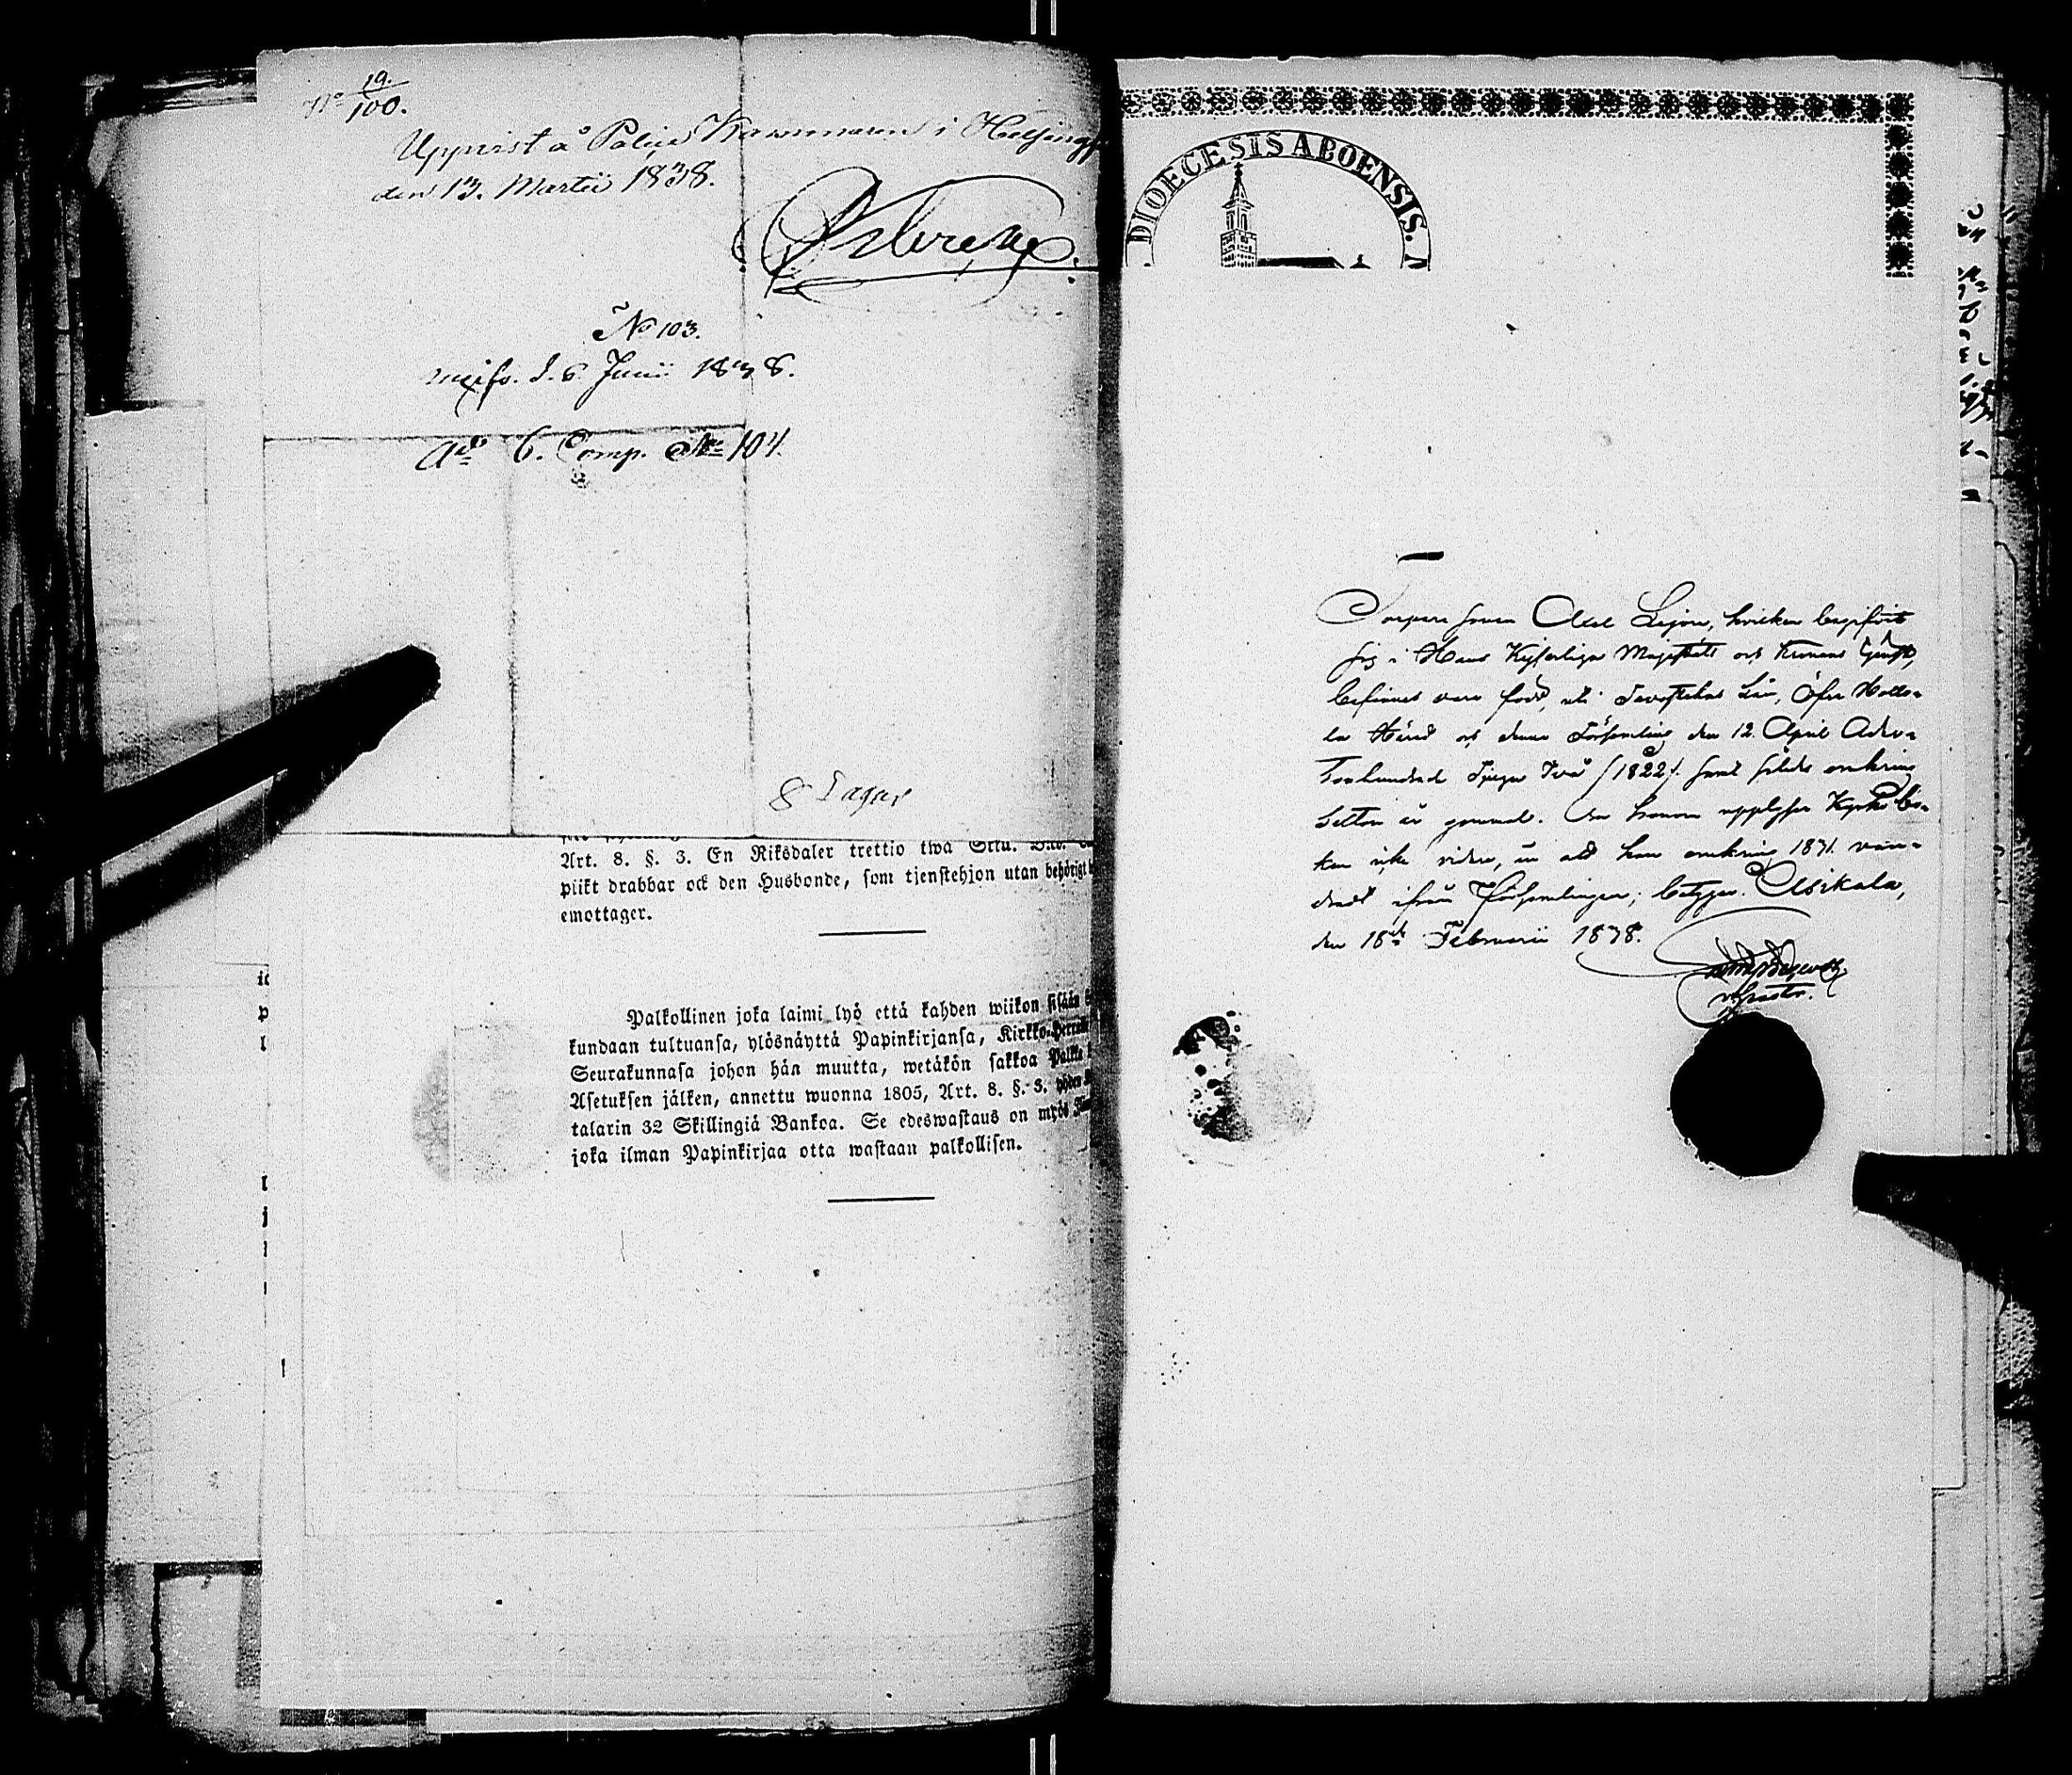 No 19./100.
Uppvist å Police Kammaren i Helsingf
den 13. Martii 1838.
No 103.
d. 6 Junii 1838.
Ad 6. Comp. No 104.
8 Dagar
Art. 8. §. 3. En Riksdaler trettio twå
plikt drabbar ock den Husbonde, som tjenstehjon utan behörigt
emottager.
Palkollinen joka laimi lyö että kahden wiikon sisään
kundaan tultuansa, ylösnäyttä Papinkirjansa, Kirkko-Herra
Seurakunnasa johon hän muutta, wetäkön sakkoa Palk
Asetuksen jälken, annettu wuonna 1805, Art. 8. §. 3. yhden
talarin 32 Skillingiä Bankoa. Se edeswastaus on myös
joka ilman Papinkirjaa otta wastaan palkollisen.
DIOECESIS ABOENSIS.
Torpare sonen Axel Lejon, hvilken begifvit
sig i Hans Kejserliga Majestäts och Kronans tjenst,
befinnes vara född, uti Tavastehus Län, Öfre Hollo-
la Härad och denna Församling den 12. April Ader-
tonhundrade Tjugu Två /1822/. samt således omkring
Sexton år gammal. Om honom upplyser Kyrko bo-
ken icke vidare, än att han omkring 1831 van-
drat ifrån Församlingen; betygar. Asikkala,
den 18de Februarii 1838.